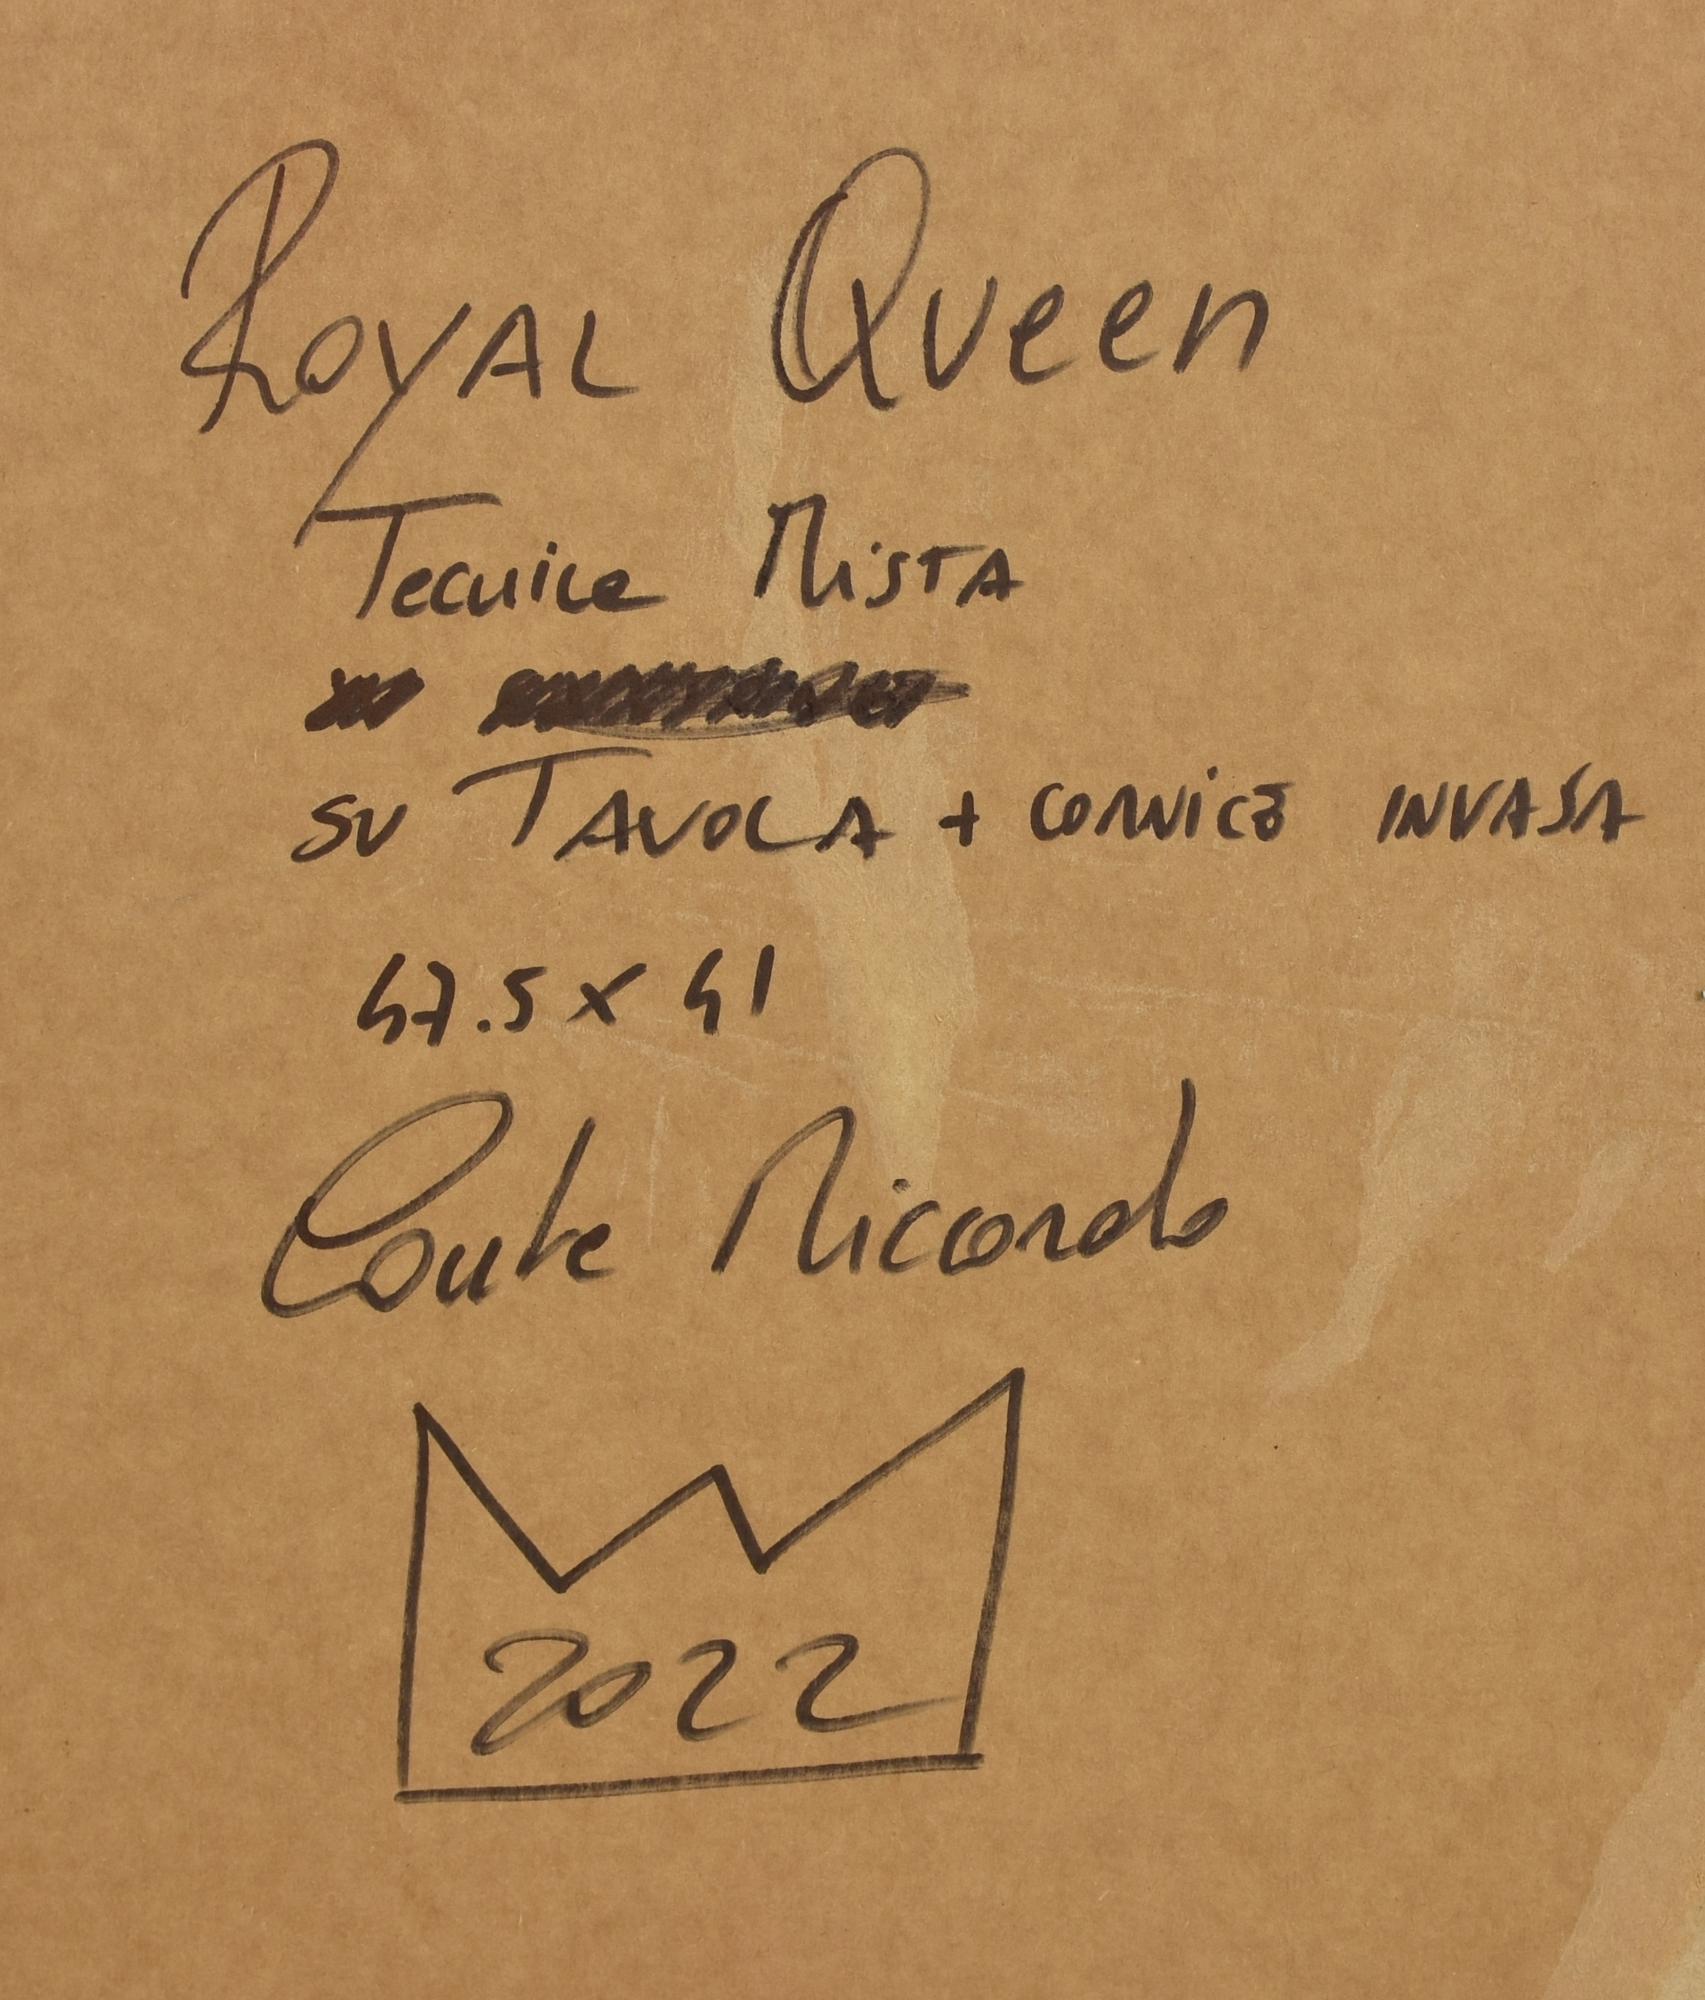 Royal Queen
Tecnica Mista
su Tavola + cornice invasa
47.5 x 41
Conte Riccardo
2022